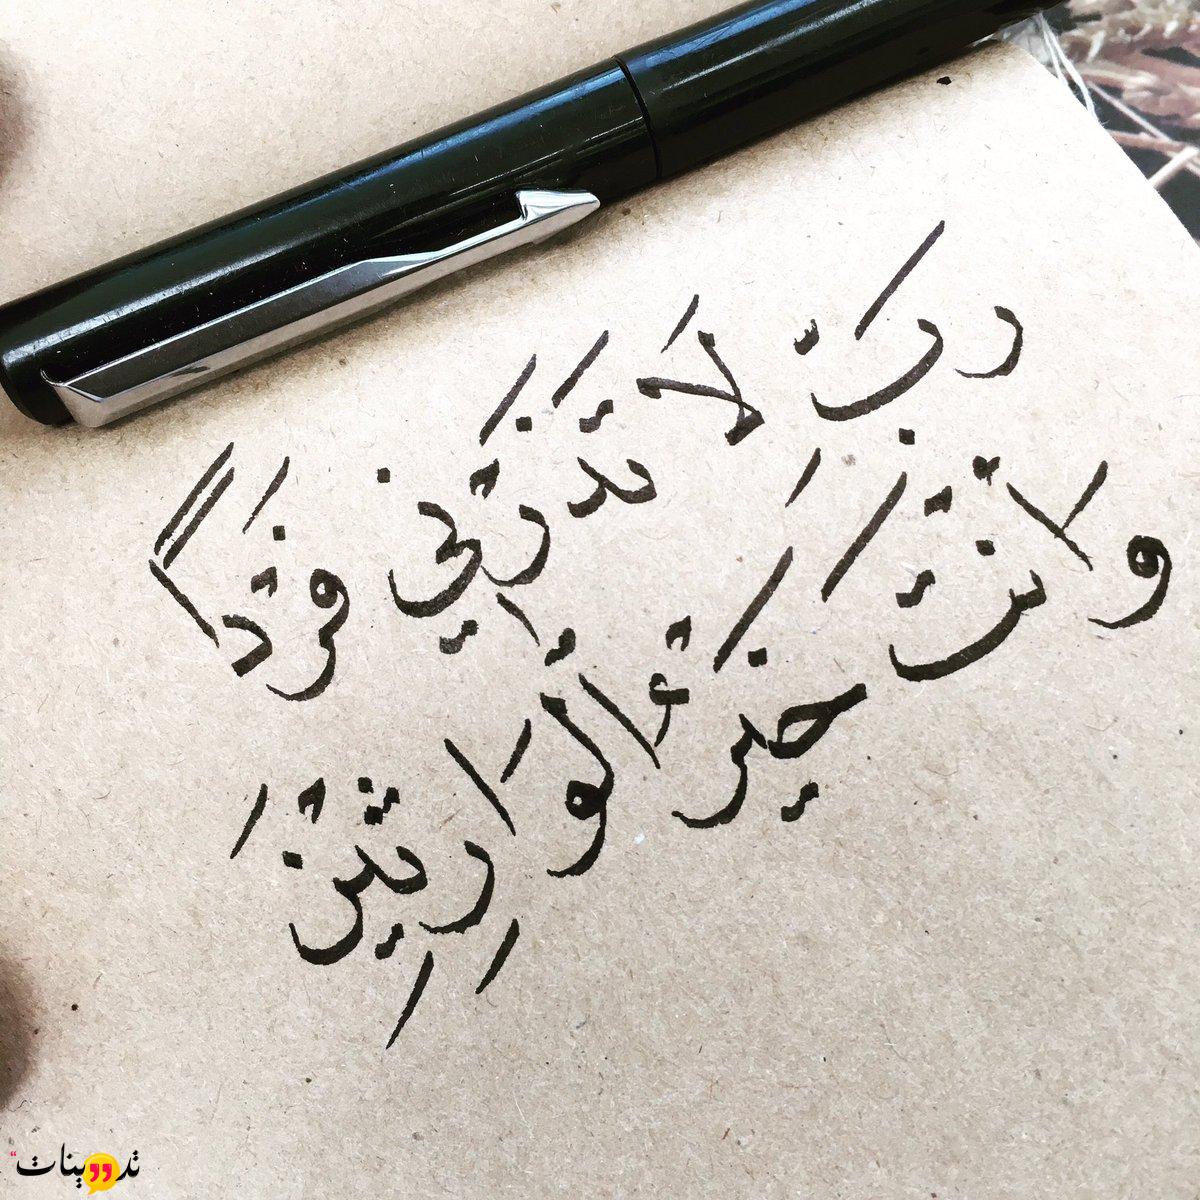 رَبِّ لَا تَذَرْنِي فَرْداً
وَأَنْتَ خَيْرُ ٱلْوَارِثِيْنَ
تدووينات